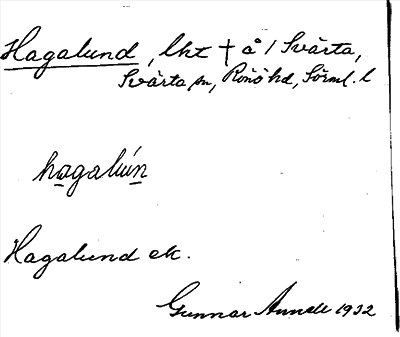 Hagalund, lht † å / Svärta,
Svärta sn, Rönö hd, Sörml. l
hagalún
Hagalund ek.
Gunnar 1932